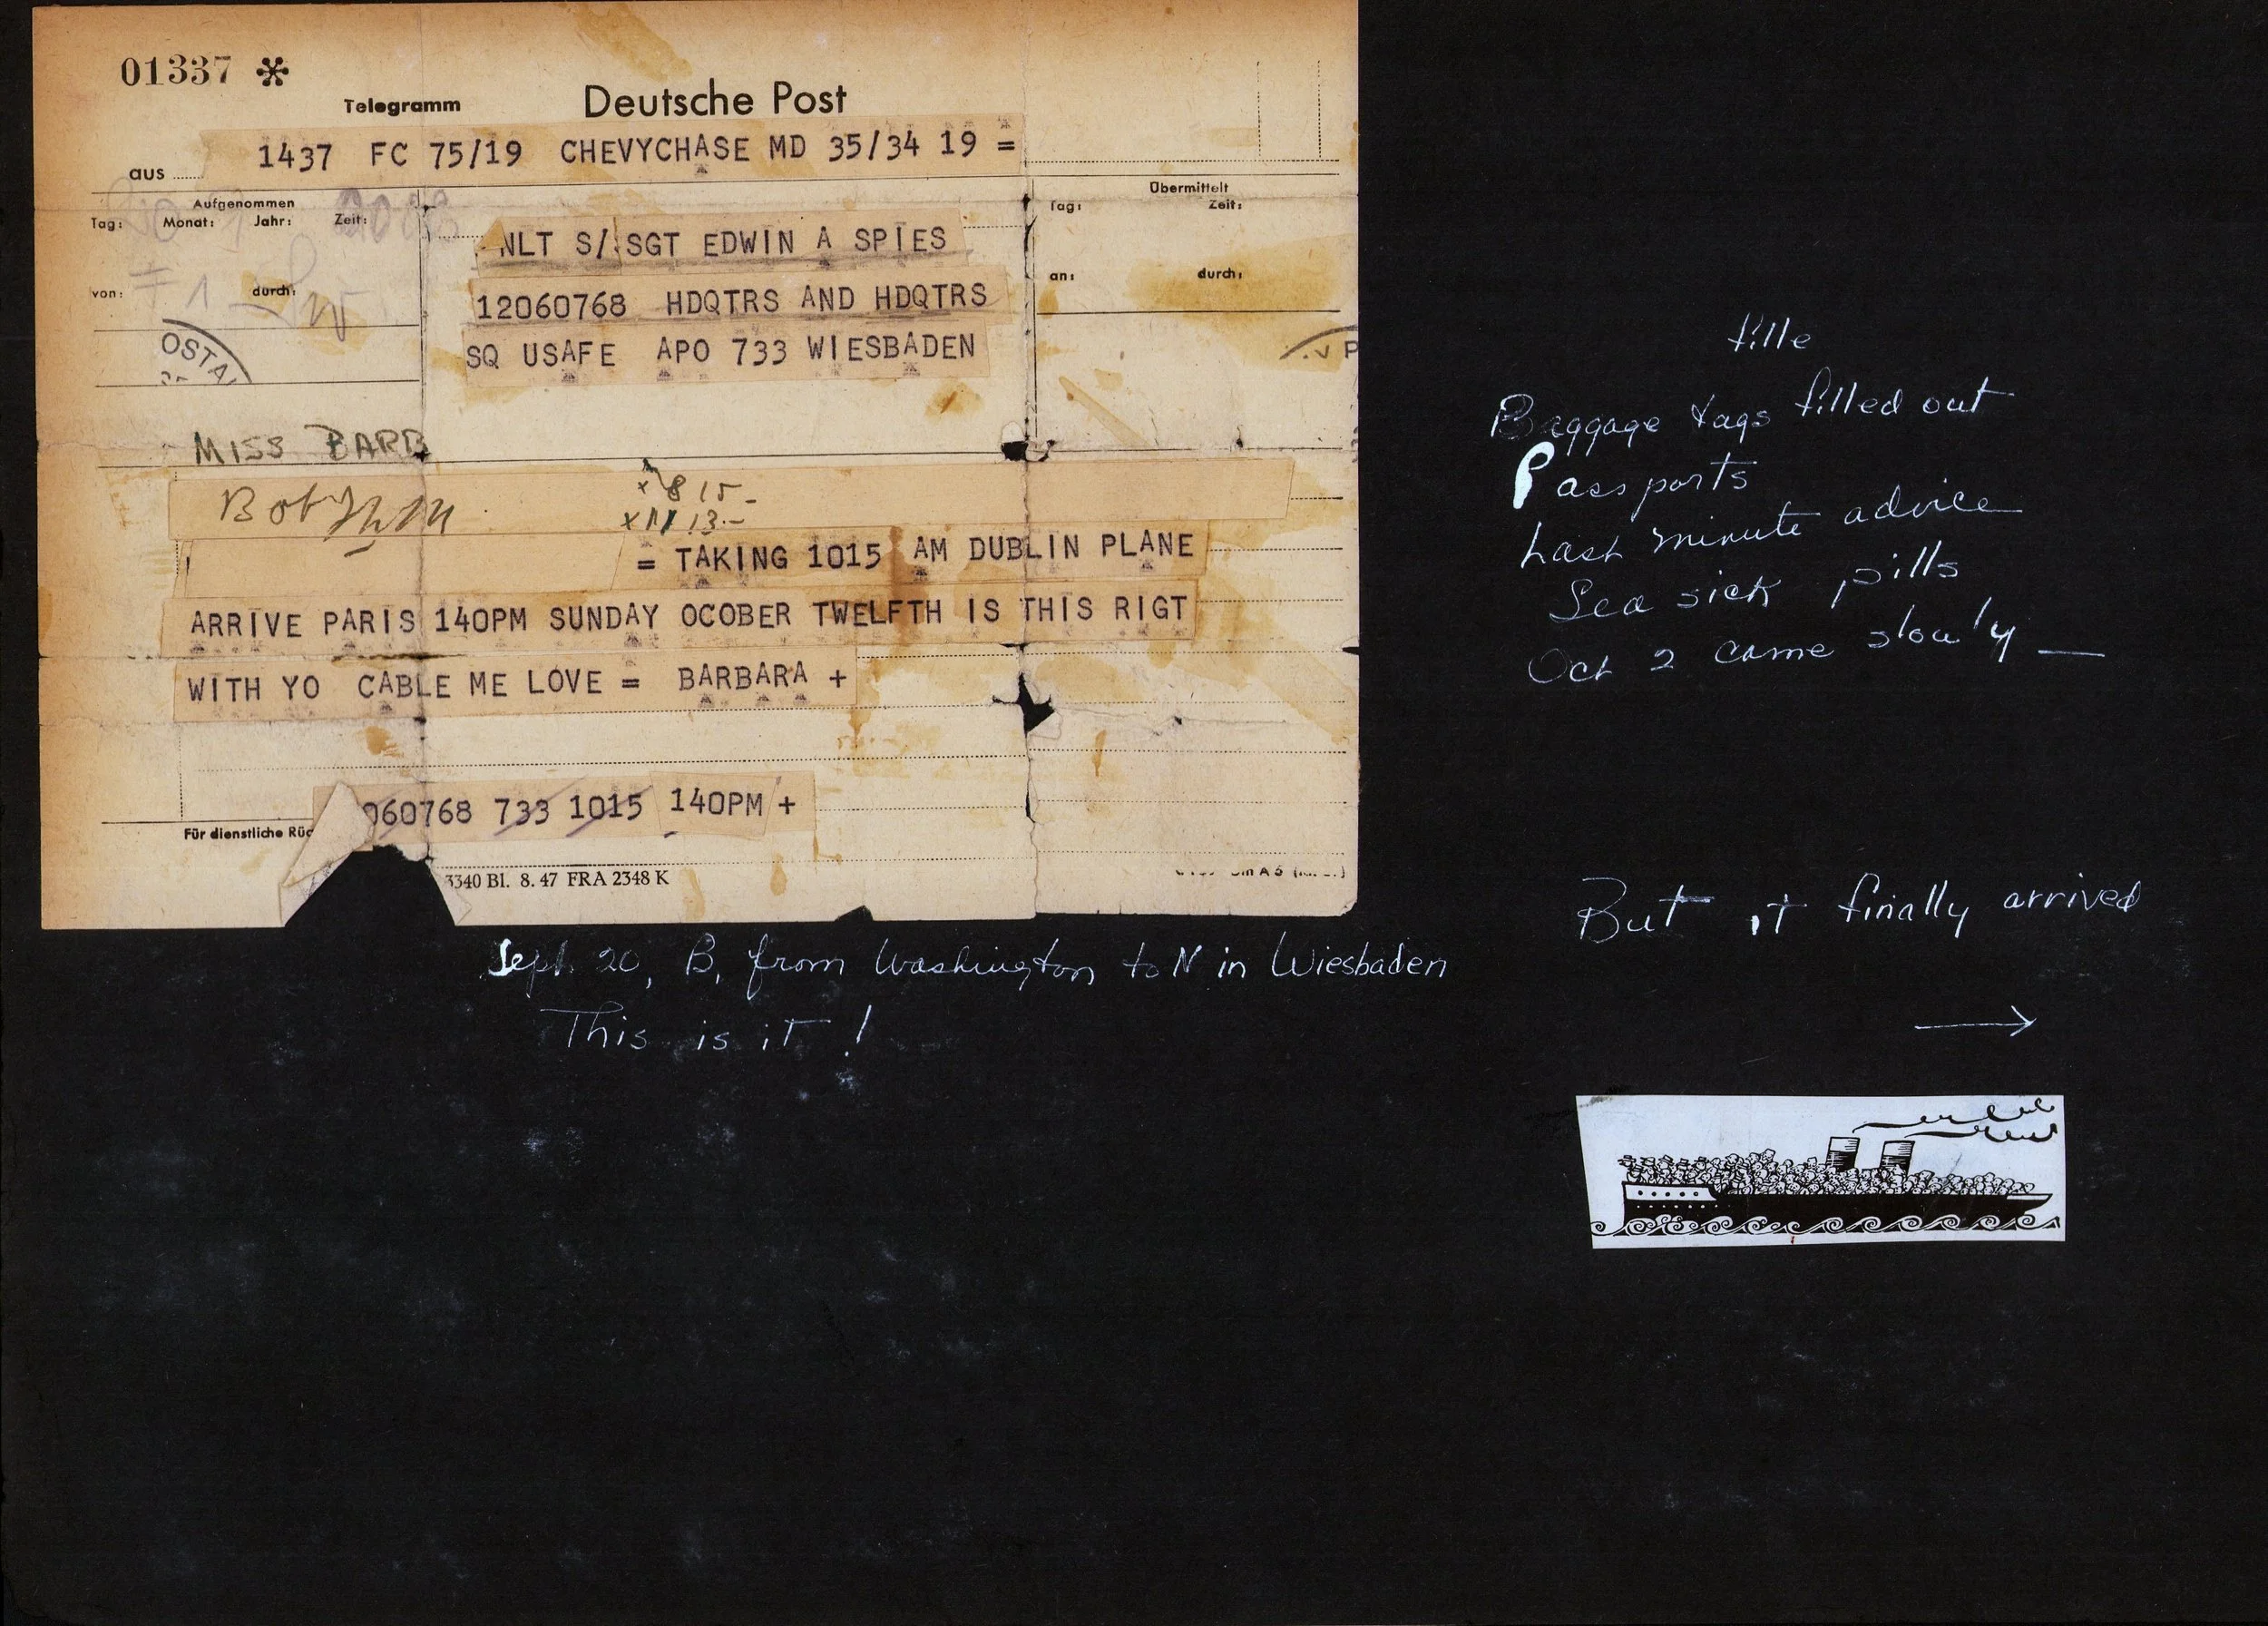 01337 *
Telegramm Deutsche Post
aus 1437 FC 75/19 CHEVYCHASE MD 35/34 19 =
Aufgenommen
Tag: Monat: Jahr: Zeit:
von: durch:
OSTA
NLT S/SGT EDWIN A SPIES
12060768 HDQTRS AND HDQTRS
SQ USAFE APO 733 WIESBADEN
Übermittelt
Tag: Zeit:
an: durch:
MISS BARB
x 8 15-
13.-
= TAKING 1015 AM DUBLIN PLANE
ARRIVE PARIS 140PM SUNDAY OCOBER TWELFTH IS THIS RIGT
WITH YO CABLE ME LOVE = BARBARA +
060768 733 1015 140PM +
Für dienstliche Rüc
3340 Bl. 8. 47 FRA 2348 K
Sept 20, B. from Washington to N in Wiesbaden
This is it !
fille
Baggage tags filled out
Passports
Last minute advice
Sea sick pills
Oct 2 came slowly —
But it finally arrived
→